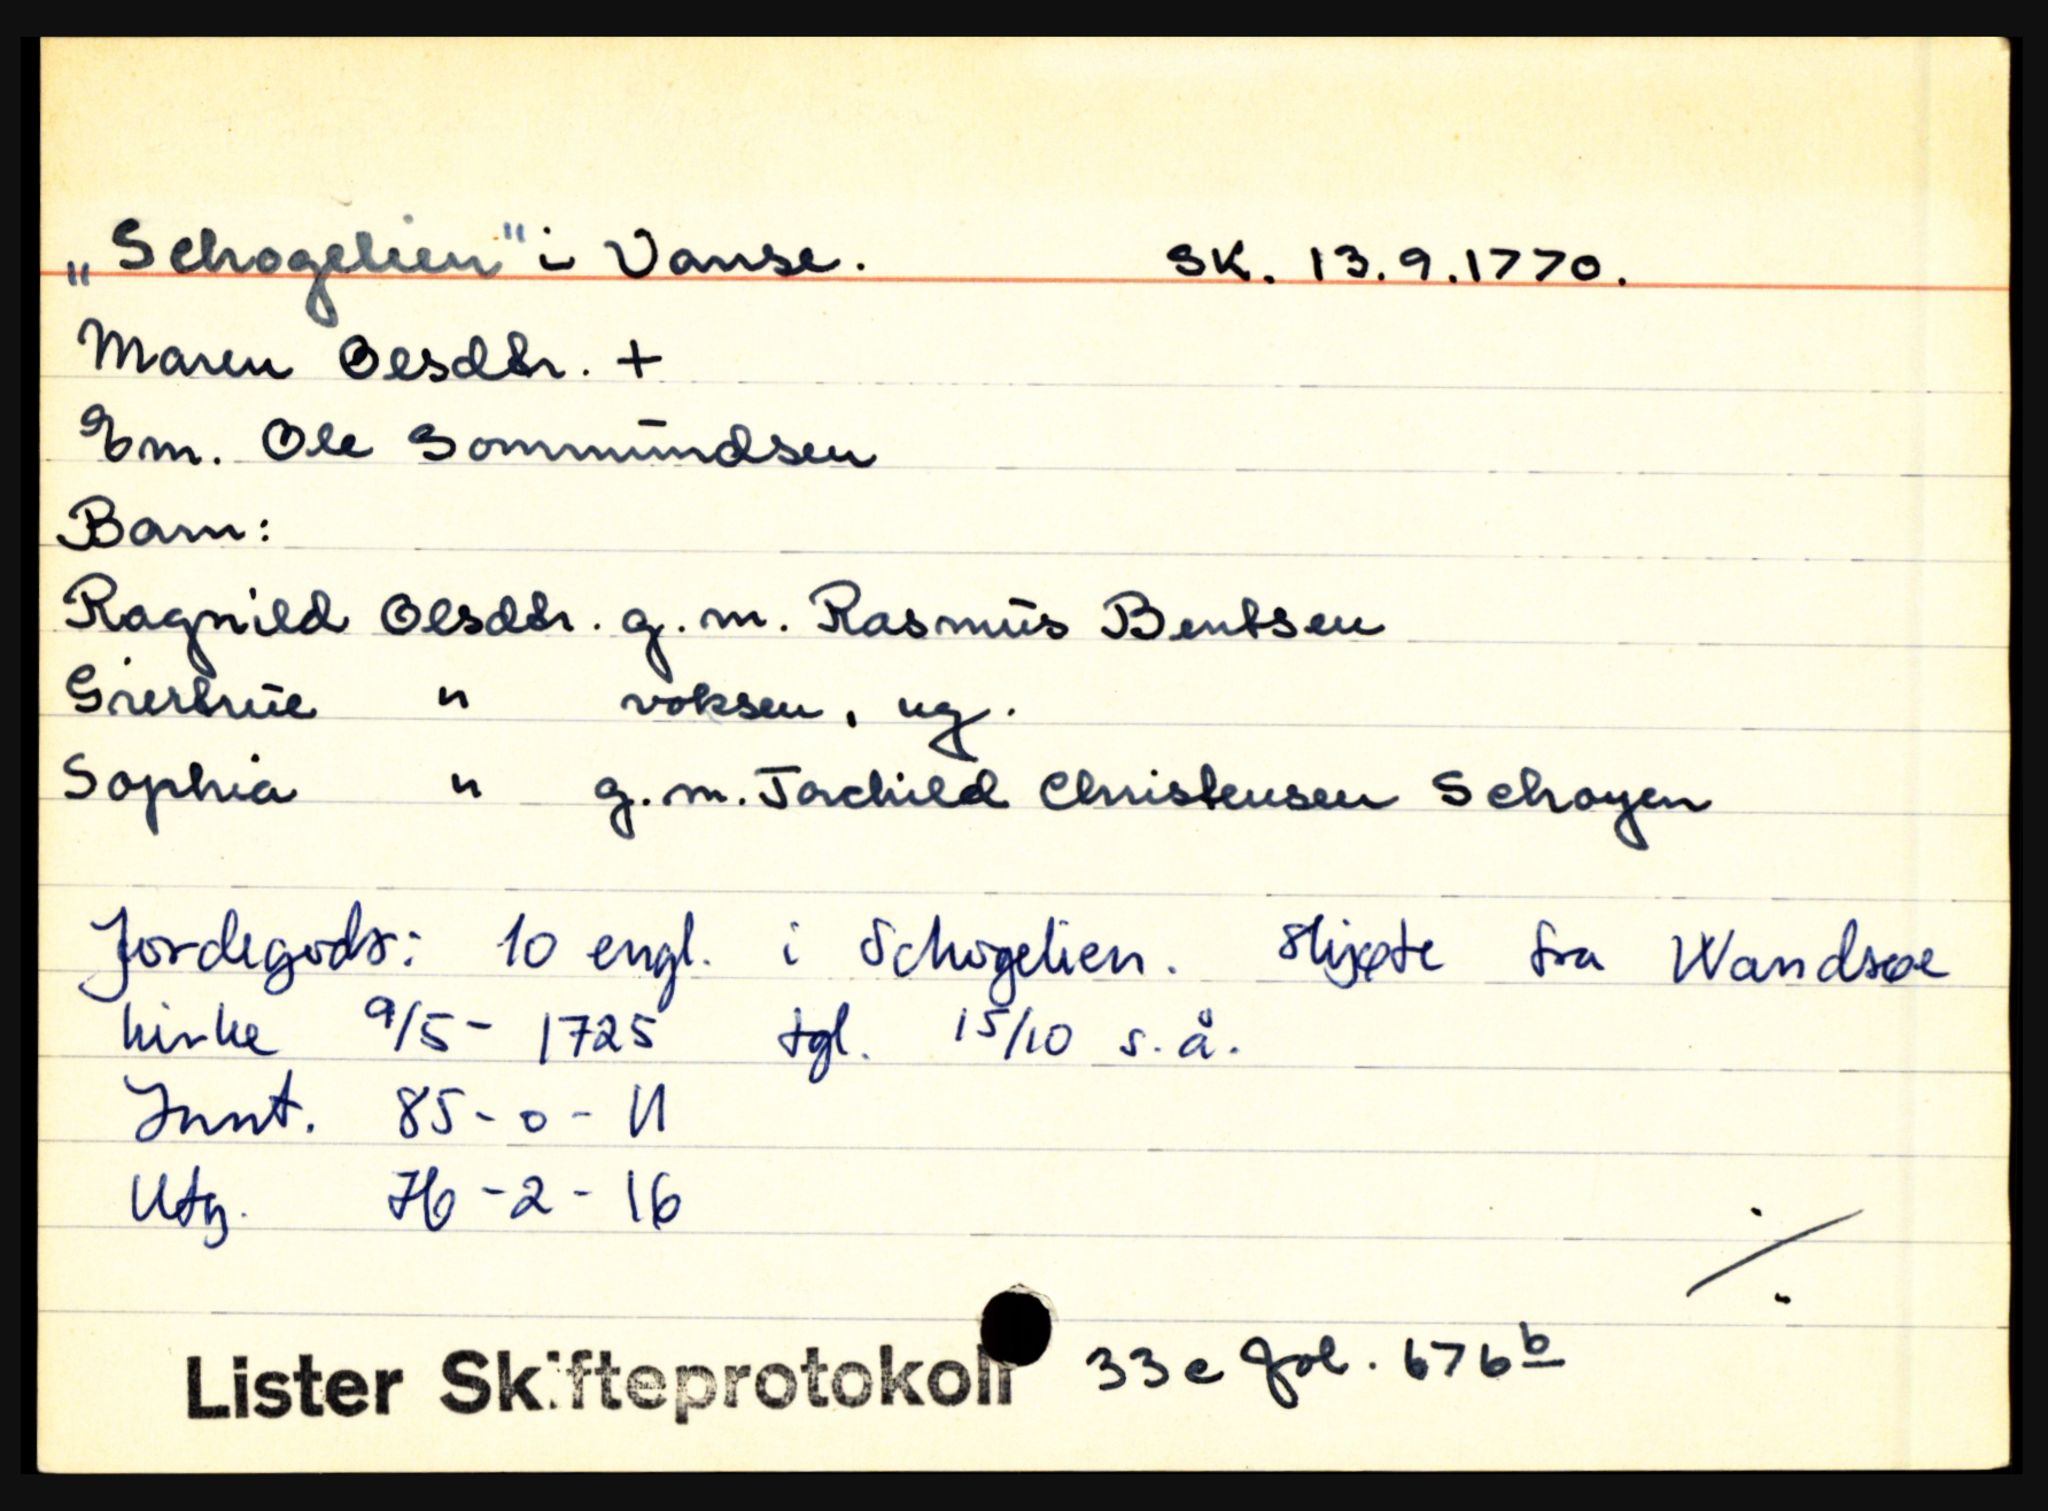 „Schogelien" i Vanse. SK. 13.9.1770.
Maren Olsdtr. +
Em. Ole Sommundsen
Barn:
Ragnild Olsdtr. g.m. Rasmus Bentsen
Giertrue " voksen, ug.
Sophia " g.m. Torchild Christensen Schoyen
Jordegods: 10 engl. i Schogelien. Skjøte fra Wandsøe
kirke 9/5 - 1725 tgl. 15/10 s.å.
Innt. 85 - 0 - 11
Utg. 76 - 2 - 16
./.
Lister Skifteprotokoll 33c fol. 676b